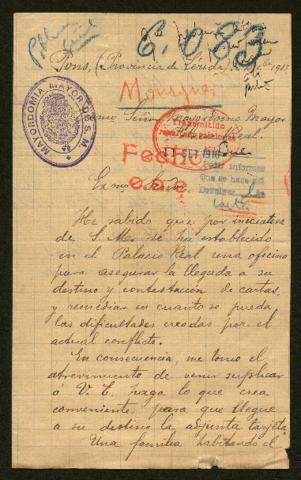 6.083
Pons, (Provincia de Lérida)
Monsignor
Excmo Señor Mayordomo Mayor
Real.
MAYORDOMIA MAYOR DE S. M.
Transmitido
11 SET. 1916
Fecho
Pedir informes
Que se hace
Devolver
carta
Excmo Señor
He sabido que por iniciativa
de S. M. se ha establecido
en el Palacio Real una oficina
para asegurar la llegada a su
destino y contestación de cartas,
y remediar en cuanto se pueda
las dificultades creadas por el
actual conflicto.
En consecuencia, me tomo el
atrevimiento de venir suplicar
á V. E. haga lo que crea
conveniente, para que llegue
a su destino la adjunta tarjeta.
Una familia habitando el